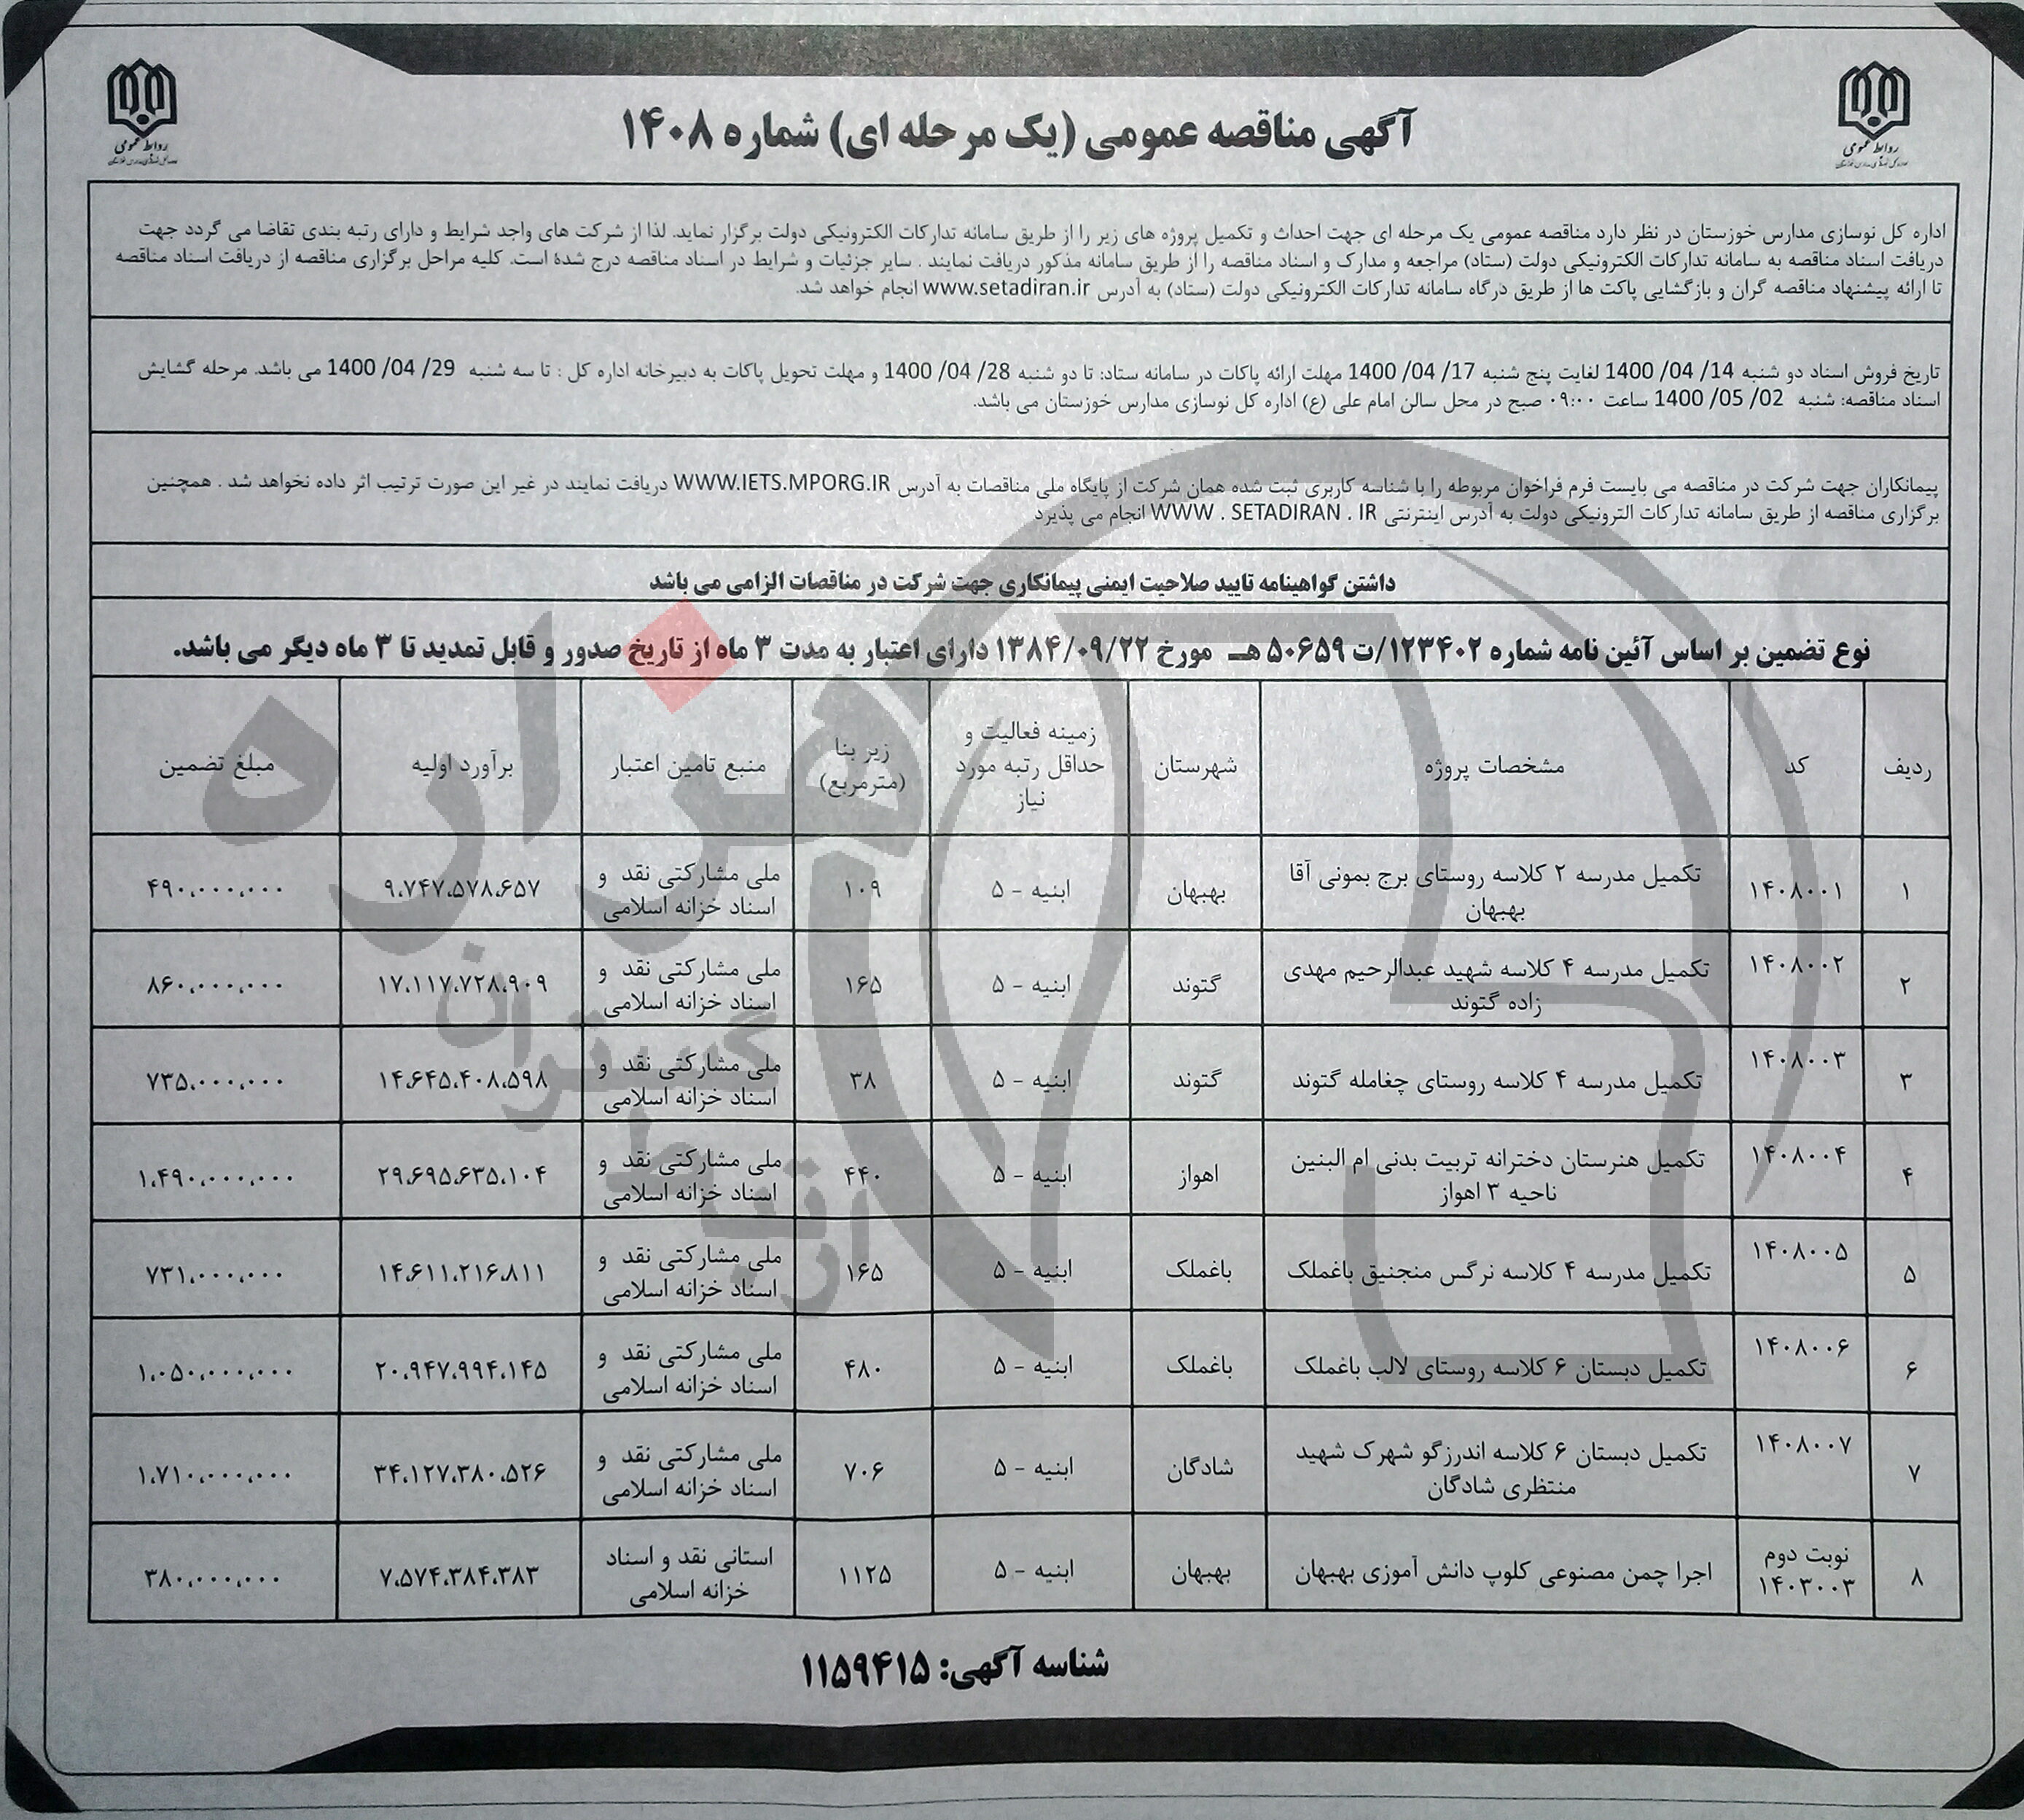 آگهی مناقصه عمومی (یک مرحله ای) شماره ۱۴۰۸
روابط عمومی
روابط عمومی
اداره کل نوسازی مدارس خوزستان در نظر دارد مناقصه عمومی یک مرحله ای جهت احداث و تکمیل پروژه های زیر را از طریق سامانه تدارکات الکترونیکی دولت برگزار نماید. لذا از شرکت های واجد شرایط و دارای رتبه بندی تقاضا می گردد جهت
دریافت اسناد مناقصه به سامانه تدارکات الکترونیکی دولت (ستاد) مراجعه و مدارک و اسناد مناقصه را از طریق سامانه مذکور دریافت نمایند . سایر جزئیات و شرایط در اسناد مناقصه درج شده است. کلیه مراحل برگزاری مناقصه از دریافت اسناد مناقصه
تا ارائه پیشنهاد مناقصه گران و بازگشایی پاکت ها از طریق درگاه سامانه تدارکات الکترونیکی دولت (ستاد) به آدرس www.setadiran.ir انجام خواهد شد.
تاریخ فروش اسناد دو شنبه 14/ 04/ 1400 لغایت پنج شنبه 17/ 04/ 1400 مهلت ارائه پاکات در سامانه ستاد: تا دو شنبه 28/ 04/ 1400 و مهلت تحویل پاکات به دبیرخانه اداره کل : تا سه شنبه 29/ 04/ 1400 می باشد. مرحله گشایش
اسناد مناقصه: شنبه 02/ 05/ 1400 ساعت ۰۹:۰۰ صبح در محل سالن امام علی (ع) اداره کل نوسازی مدارس خوزستان می باشد.
پیمانکاران جهت شرکت در مناقصه می بایست فرم فراخوان مربوطه را با شناسه کاربری ثبت شده همان شرکت از پایگاه ملی مناقصات به آدرس WWW.IETS.MPORG.IR دریافت نمایند در غیر این صورت ترتیب اثر داده نخواهد شد . همچنین
برگزاری مناقصه از طریق سامانه تدارکات الترونیکی دولت به آدرس اینترنتی WWW . SETADIRAN . IR انجام می پذیرد
داشتن گواهینامه تایید صلاحیت ایمنی پیمانکاری جهت شرکت در مناقصات الزامی می باشد
نوع تضمین بر اساس آئین نامه شماره ۱۲۳۴۰۲/ت ۵۰۶۵۹ هـ مورخ ۱۳۸۴/۰۹/۲۲ دارای اعتبار به مدت ۳ ماه از تاریخ صدور و قابل تمدید تا ۳ ماه دیگر می باشد.
ردیف کد مشخصات پروژه شهرستان زمینه فعالیت و حداقل رتبه مورد نیاز زیر بنا (مترمربع) منبع تامین اعتبار برآورد اولیه مبلغ تضمین
۱ ۱۴۰۸۰۰۱ تکمیل مدرسه ۲ کلاسه روستای برج بمونی آقا بهبهان بهبهان ابنیه - ۵ ۱۰۹ ملی مشارکتی نقد و اسناد خزانه اسلامی ۹،۷۴۷،۵۷۸،۶۵۷ ۴۹۰،۰۰۰،۰۰۰
۲ ۱۴۰۸۰۰۲ تکمیل مدرسه ۴ کلاسه شهید عبدالرحیم مهدی زاده گتوند گتوند ابنیه - ۵ ۱۶۵ ملی مشارکتی نقد و اسناد خزانه اسلامی ۱۷،۱۱۷،۷۲۸،۹۰۹ ۸۶۰،۰۰۰،۰۰۰
۳ ۱۴۰۸۰۰۳ تکمیل مدرسه ۴ کلاسه روستای چغامله گتوند گتوند ابنیه - ۵ ۳۸ ملی مشارکتی نقد و اسناد خزانه اسلامی ۱۴،۶۴۵،۴۰۸،۵۹۸ ۷۳۵،۰۰۰،۰۰۰
۴ ۱۴۰۸۰۰۴ تکمیل هنرستان دخترانه تربیت بدنی ام البنین ناحیه ۳ اهواز اهواز ابنیه - ۵ ۴۴۰ ملی مشارکتی نقد و اسناد خزانه اسلامی ۲۹،۶۹۵،۶۳۵،۱۰۴ ۱،۴۹۰،۰۰۰،۰۰۰
۵ ۱۴۰۸۰۰۵ تکمیل مدرسه ۴ کلاسه نرگس منجنیق باغملک باغملک ابنیه - ۵ ۱۶۵ ملی مشارکتی نقد و اسناد خزانه اسلامی ۱۴،۶۱۱،۲۱۶،۸۱۱ ۷۳۱،۰۰۰،۰۰۰
۶ ۱۴۰۸۰۰۶ تکمیل دبستان ۶ کلاسه روستای لالب باغملک باغملک ابنیه - ۵ ۴۸۰ ملی مشارکتی نقد و اسناد خزانه اسلامی ۲۰،۹۴۷،۹۹۴،۱۴۵ ۱،۰۵۰،۰۰۰،۰۰۰
۷ ۱۴۰۸۰۰۷ تکمیل دبستان ۶ کلاسه اندرزگو شهرک شهید منتظری شادگان شادگان ابنیه - ۵ ۷۰۶ ملی مشارکتی نقد و اسناد خزانه اسلامی ۳۴،۱۲۷،۳۸۰،۵۲۶ ۱،۷۱۰،۰۰۰،۰۰۰
۸ نوبت دوم ۱۴۰۳۰۰۳ اجرا چمن مصنوعی کلوپ دانش آموزی بهبهان بهبهان ابنیه - ۵ ۱۱۲۵ استانی نقد و اسناد خزانه اسلامی ۷،۵۷۴،۳۸۴،۳۸۳ ۳۸۰،۰۰۰،۰۰۰
شناسه آگهی: ۱۱۵۹۴۱۵
هزاره